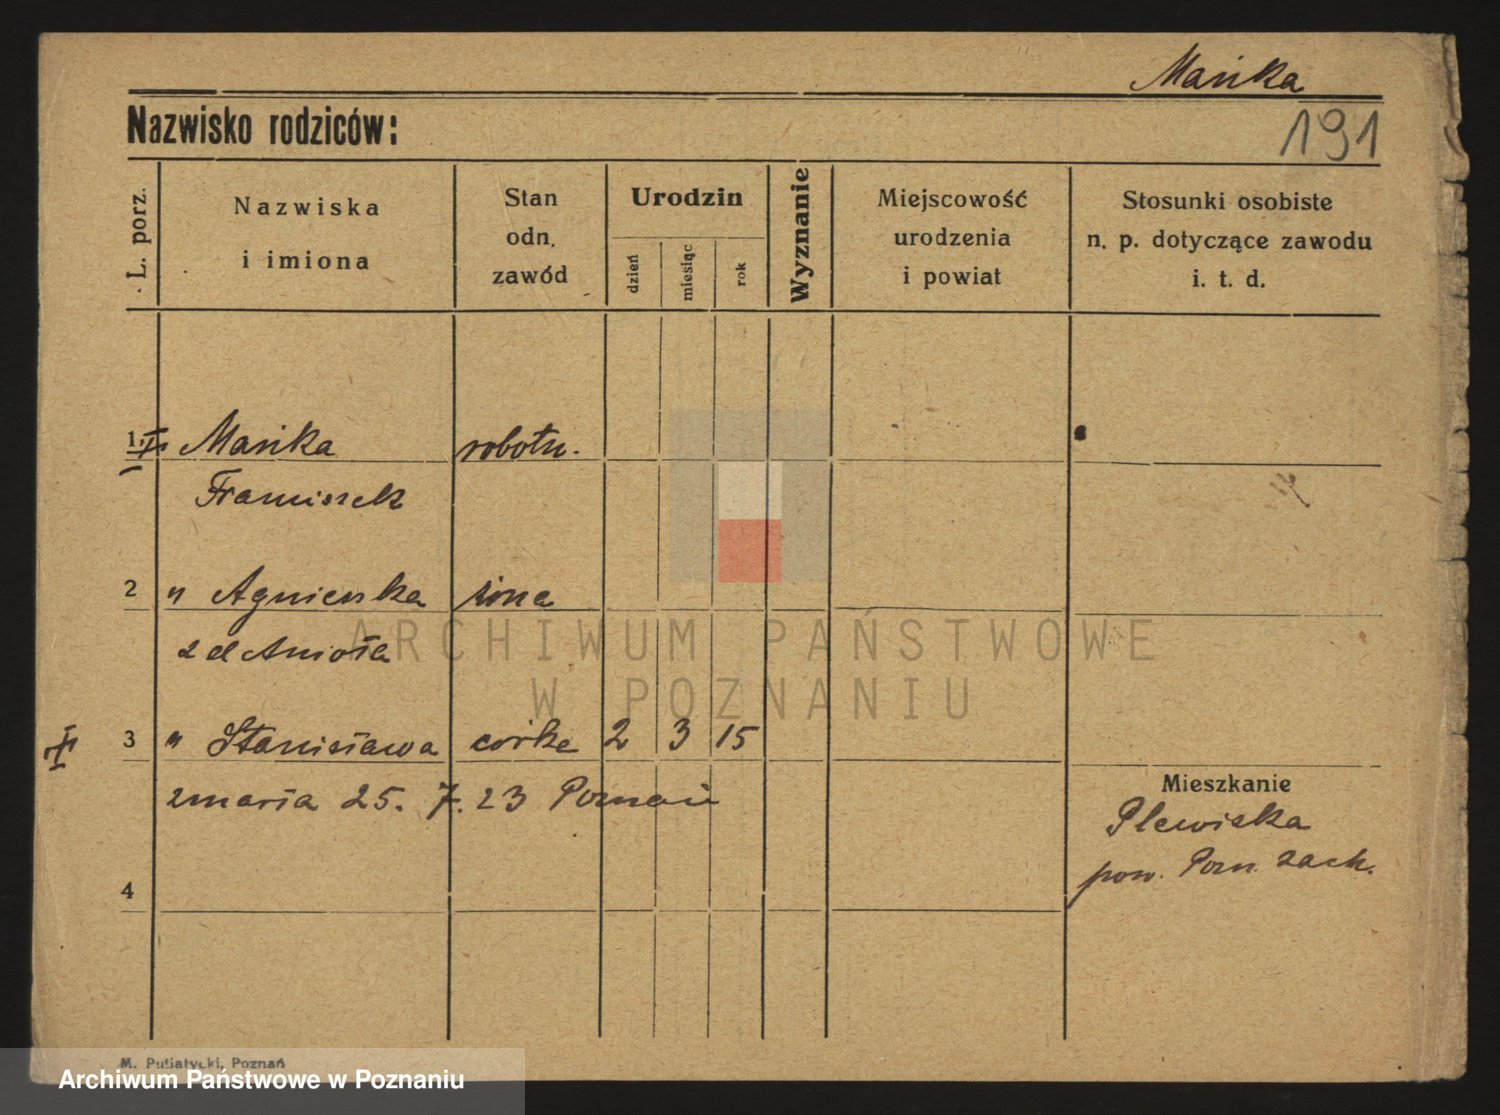 Mańka
Nazwisko rodziców:
191
L. porz.
Nazwiska
i imiona
Stan
odn.
zawód
Urodzin
dzień
miesiąc
rok
Wyznanie
Miejscowość
urodzenia
i powiat
Stosunki osobiste
n. p. dotyczące zawodu
i. t. d.
1. Mańka robotn.
Franciszek
2 " Agnieszka żona
z d Anioła
3 " Stanisława córka 2 3 15
zmarła 25. 7. 23 Poznań
Mieszkanie
Plewiska
pow. Pozn. Zach.
4
ARCHIWUM PAŃSTWOWE
W POZNANIU
M. Putiatycki, Poznań
Archiwum Państwowe w Poznaniu